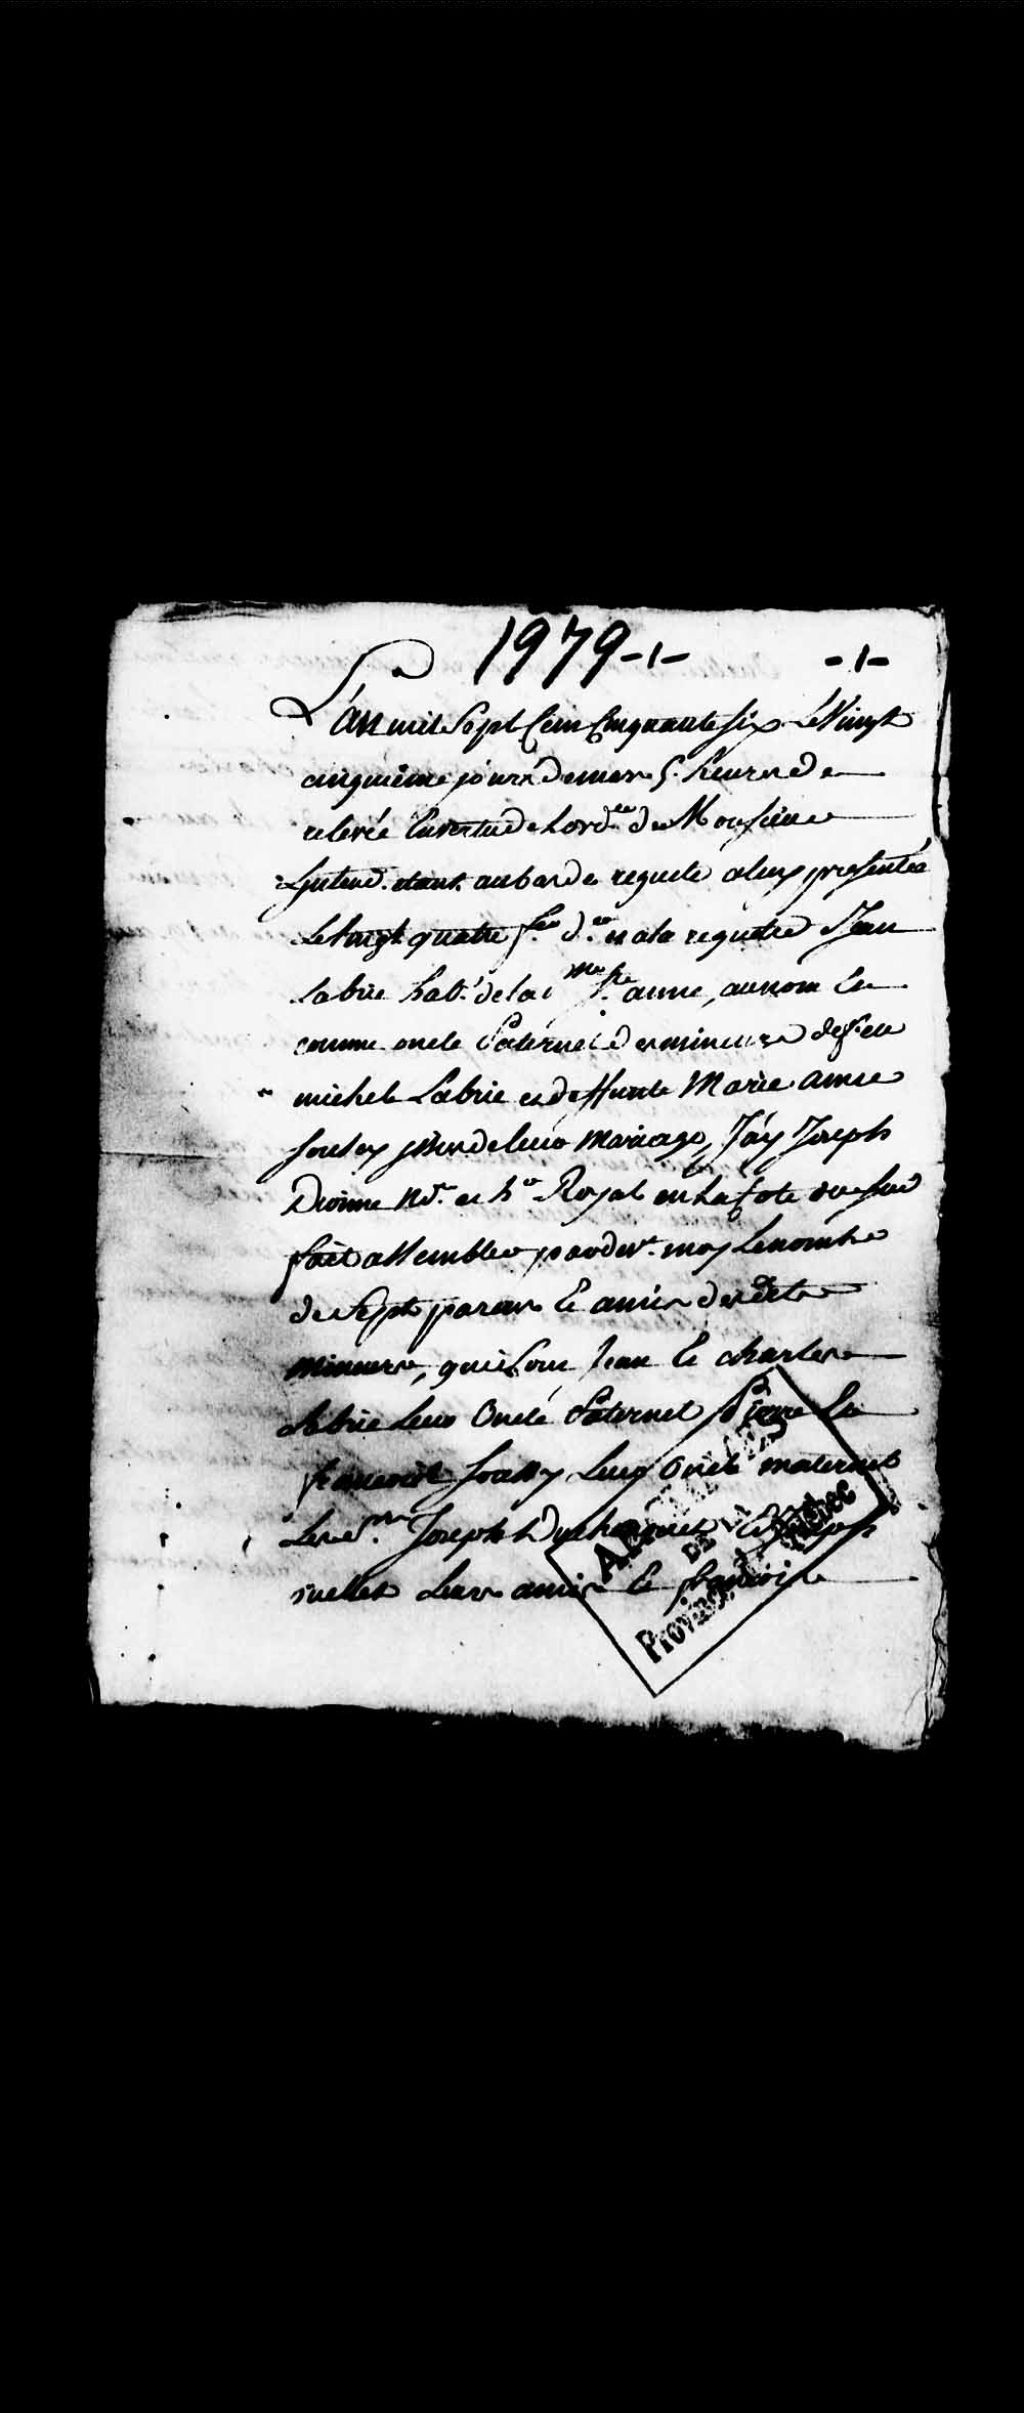 1979-1-
-1-
L'an mil Sept Cein Cinquante six Le Vingt
cinquiéme jour de mars 5. heures de
relevée En vertu de Lord.ce de Monsieur
Intend. étant au bas de requete a luy presentée
Le Vingt quatre d. et a la requete de Jean
Labrie habt. de la Ste. anne, au nom Et
comme oncle Paternel des mineurs de feu
michel Labrie et deffunte Marie anne
Soucy issus de leur Mariage, J'ay Joseph
Dionne No.re et h.er Royal en La Cote du Sud
fait assembler pardvt. moy Le nombre
de Sept parans Et amis des dits
Mineurs, qui sont Jean Et Charles
Labrie Leur Oncle Paternel Pierre Et
françois Soucy Leur Oncle maternel
Joseph Et
ruellet Leurs amis Et françois
ARCHIVES
DE LA
Province de Québec